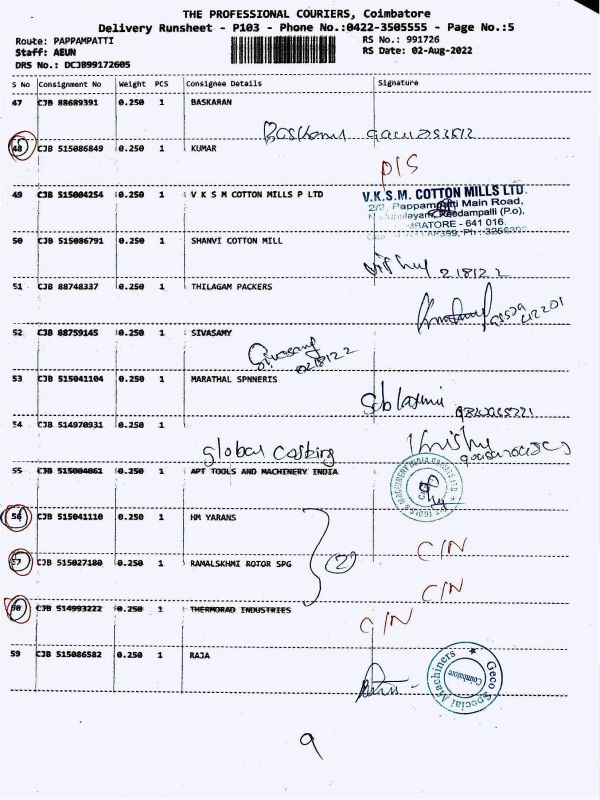 THE PROFESSIONAL COURIERS, Coimbatore
Delivery Runsheet - P103 - Phone No.:0422-3505555 - Page No.:5
Route: PAPPAMPATTI
RS No.: 991726
Staff: AEUN
RS Date: 02-Aug-2022
DRS No.: DCJB99172605
S No Consignment No Weight PCS Consignee Details Signature
47 CJB 88689391 0.250 1 BASKARAN
48 CJB 515086849 0.250 1 KUMAR
D/S
49 CJB 515004254 0.250 1 V K S M COTTON MILLS P LTD
V.K.S.M. COTTON MILLS LTD.
2/2, Pappampatti Main Road,
50 CJB 515086791 0.250 1 SHANVI COTTON MILL
51 CJB 88748337 0.250 1 THILAGAM PACKERS
52 CJB 88759145 0.250 1 SIVASAMY
53 CJB 515041104 0.250 1 MARATHAL SPNNERIS
54 CJB 514970931 0.250 1
global casking
55 CJB 515004061 0.250 1 APT TOOLS AND MACHINERY INDIA
56 CJB 515041110 0.250 1 HM YARANS
C/N
57 CJB 515027180 0.250 1 RAMALSKHMI ROTOR SPG
2
C/N
58 CJB 514993222 0.250 1 THERMORAD INDUSTRIES
C/N
59 CJB 515086582 0.250 1 RAJA
Geco Special Machiners
Coimbatore
9